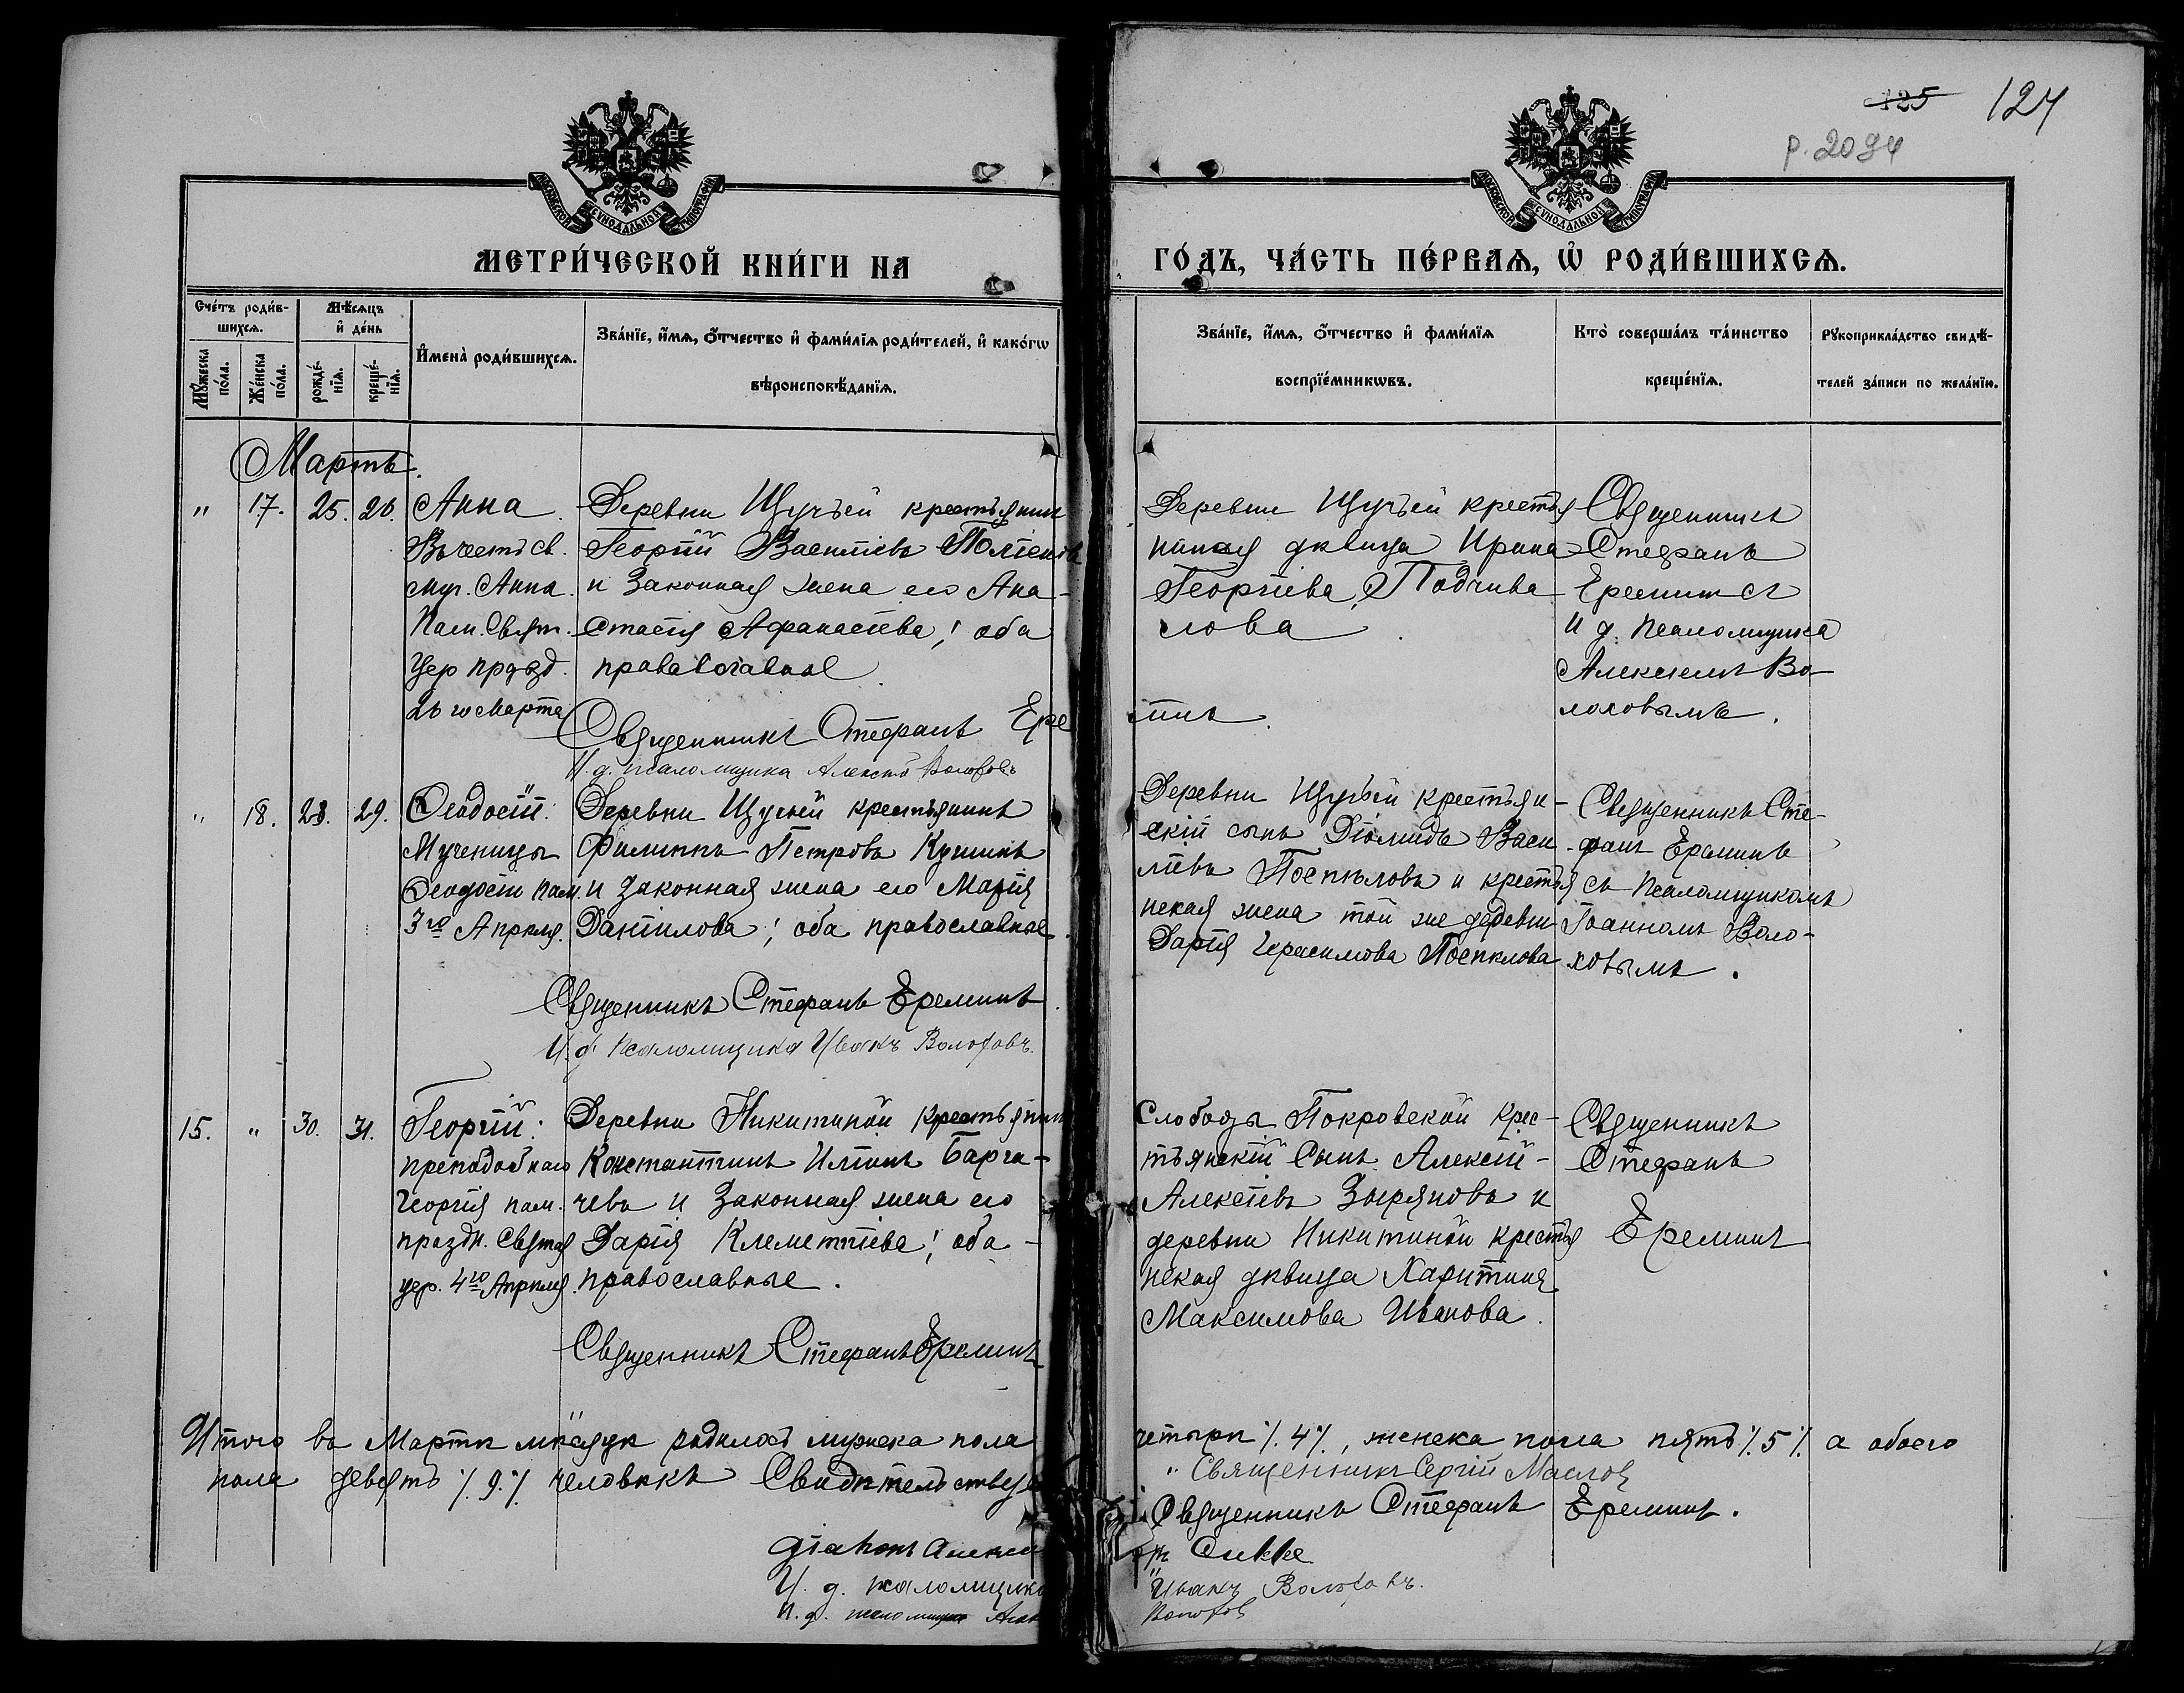 125 124
р. 2094
МОСКОВСКОЙ СѴНОДАЛЬНОЙ ТИПОГРАФІИ
МОСКОВСКОЙ СѴНОДАЛЬНОЙ ТИПОГРАФІИ
МЕТРИ́ЧЕСКОЙ КНИ́ГИ НА
ГО́ДЪ, ЧА́СТЬ ПЕ́РВАѦ, Ѡ РОДИ́ВШИХСѦ.
Сче́тъ роди́в-
шихсѧ.
Мꙋжеска
по́ла.
Же́нска
по́ла.
Мѣ́сѧцъ
и де́нь
рожде́-
нїѧ.
креще́-
нїѧ.
Имена̀ роди́вшихсѧ.
Зва́нїе, и́мѧ, о́тчество и фами́лїѧ роди́телей, и како́гѡ
вѣроисповѣ́данїѧ.
Зва́нїе, и́мѧ, о́тчество и фами́лїѧ
воспрїе́мникѡвъ.
Кто̀ соверша́лъ та́инство
креще́нїѧ.
Рꙋкоприкла́дство свидѣ́-
телей за́писи по жела́нїю.
Мартъ.
" 17. 25. 26.
Анна.
Въ честь св.
муч. Анна.
Пам. Свят.
Цер празд.
26 го Марта
Деревни Щучьей крестьянин
Георгій Васильевъ
и Законная жена его Ана-
стасія Афанасіева; оба
православные
Священникъ Стефанъ Ере
И. д. псаломщика Алексѣй Волоховъ
Деревни Щучьей крестья
нская дѣвица Ирина
Георгіева Подчива
лова
минъ.
Священникъ
Стефанъ
Ереминъ съ
И д. псаломщика
Алексѣемъ Во-
лоховымъ.
" 18. 28. 29.
Ѳеодосія:
Мученицы
Ѳеодосіи пам.
3го Апрѣля.
Деревни Щучьей крестьянинъ
Филиппъ Петровъ Кушинъ
и законная жена его Марія
Даніилова; оба православные.
Священникъ Стефанъ Ереминъ
И. д. Псаломщика Иванъ Волоховъ.
Деревни Щучьей крестьян-
скій сынъ Діомидъ Васи-
льевъ Поспѣловъ и крестья
нская жена той же деревни
Дарія Герасимова Поспѣлова
Священникъ Сте-
фанъ Ереминъ
съ Псаломщикомъ
Іоанномъ Воло-
ховымъ.
15. " 30. 31.
Георгій:
преподобнаго
Георгія пам.
праздн. Святая
цер. 4го Апрѣля.
Деревни Никитиной крестьянинъ
Константинъ Ильинъ Барга-
чевъ и Законная жена его
Дарія Клементіева; оба
православные.
Священникъ Стефанъ Ереминъ
Слободы Покровской крес-
тьянскій Сынъ Алексѣй
Алексѣевъ Зыряновъ и
деревни Никитиной крестья
нская дѣвица Харитина
Максимова Иванова.
Священникъ
Стефанъ
Ереминъ
Итого въ Мартѣ мѣсяцѣ родилось мужеска пола
четыре /. 4 /., женска пола пять /. 5 /. а обоего
пола девять /. 9. /. человѣкъ Свидѣтельствуе
" Священникъ Сергій Маслов
Священникъ Стефанъ Ереминъ.
діаконъ Алекса
И. д. псаломщика
Иванъ Волоховъ.
И. д. псаломщика
Волохов